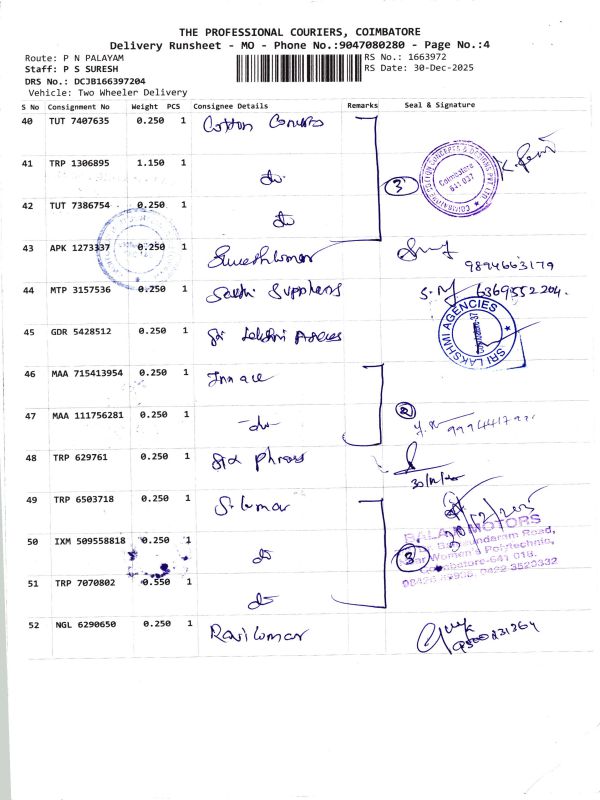 THE PROFESSIONAL COURIERS, COIMBATORE
Delivery Runsheet - MO - Phone No.:9047080280 - Page No.:4
Route: P N PALAYAM
RS No.: 1663972
Staff: P S SURESH
RS Date: 30-Dec-2025
DRS No.: DCJB166397204
Vehicle: Two Wheeler Delivery
S No Consignment No Weight PCS Consignee Details Remarks Seal & Signature
40 TUT 7407635 0.250 1 Cotton
41 TRP 1306895 1.150 1 do
3
Coimbatore
641 037
42 TUT 7386754 0.250 1 do
43 APK 1273337 0.250 1 Sureshkumar
9894663179
44 MTP 3157536 0.250 1 Sakthi Suppliers
6369552204.
45 GDR 5428512 0.250 1 Sri Lakshmi
SRI LAKSHMI AGENCIES
46 MAA 715413954 0.250 1
47 MAA 111756281 0.250 1 -do-
2
48 TRP 629761 0.250 1
49 TRP 6503718 0.250 1 S. Kumar
30/12/2025
50 IXM 509558818 0.250 1 do
BALAJI MOTORS
Women's Polytechnic,
Coimbatore-641 018.
3
51 TRP 7070802 0.550 1 do
52 NGL 6290650 0.250 1 Ravikumar